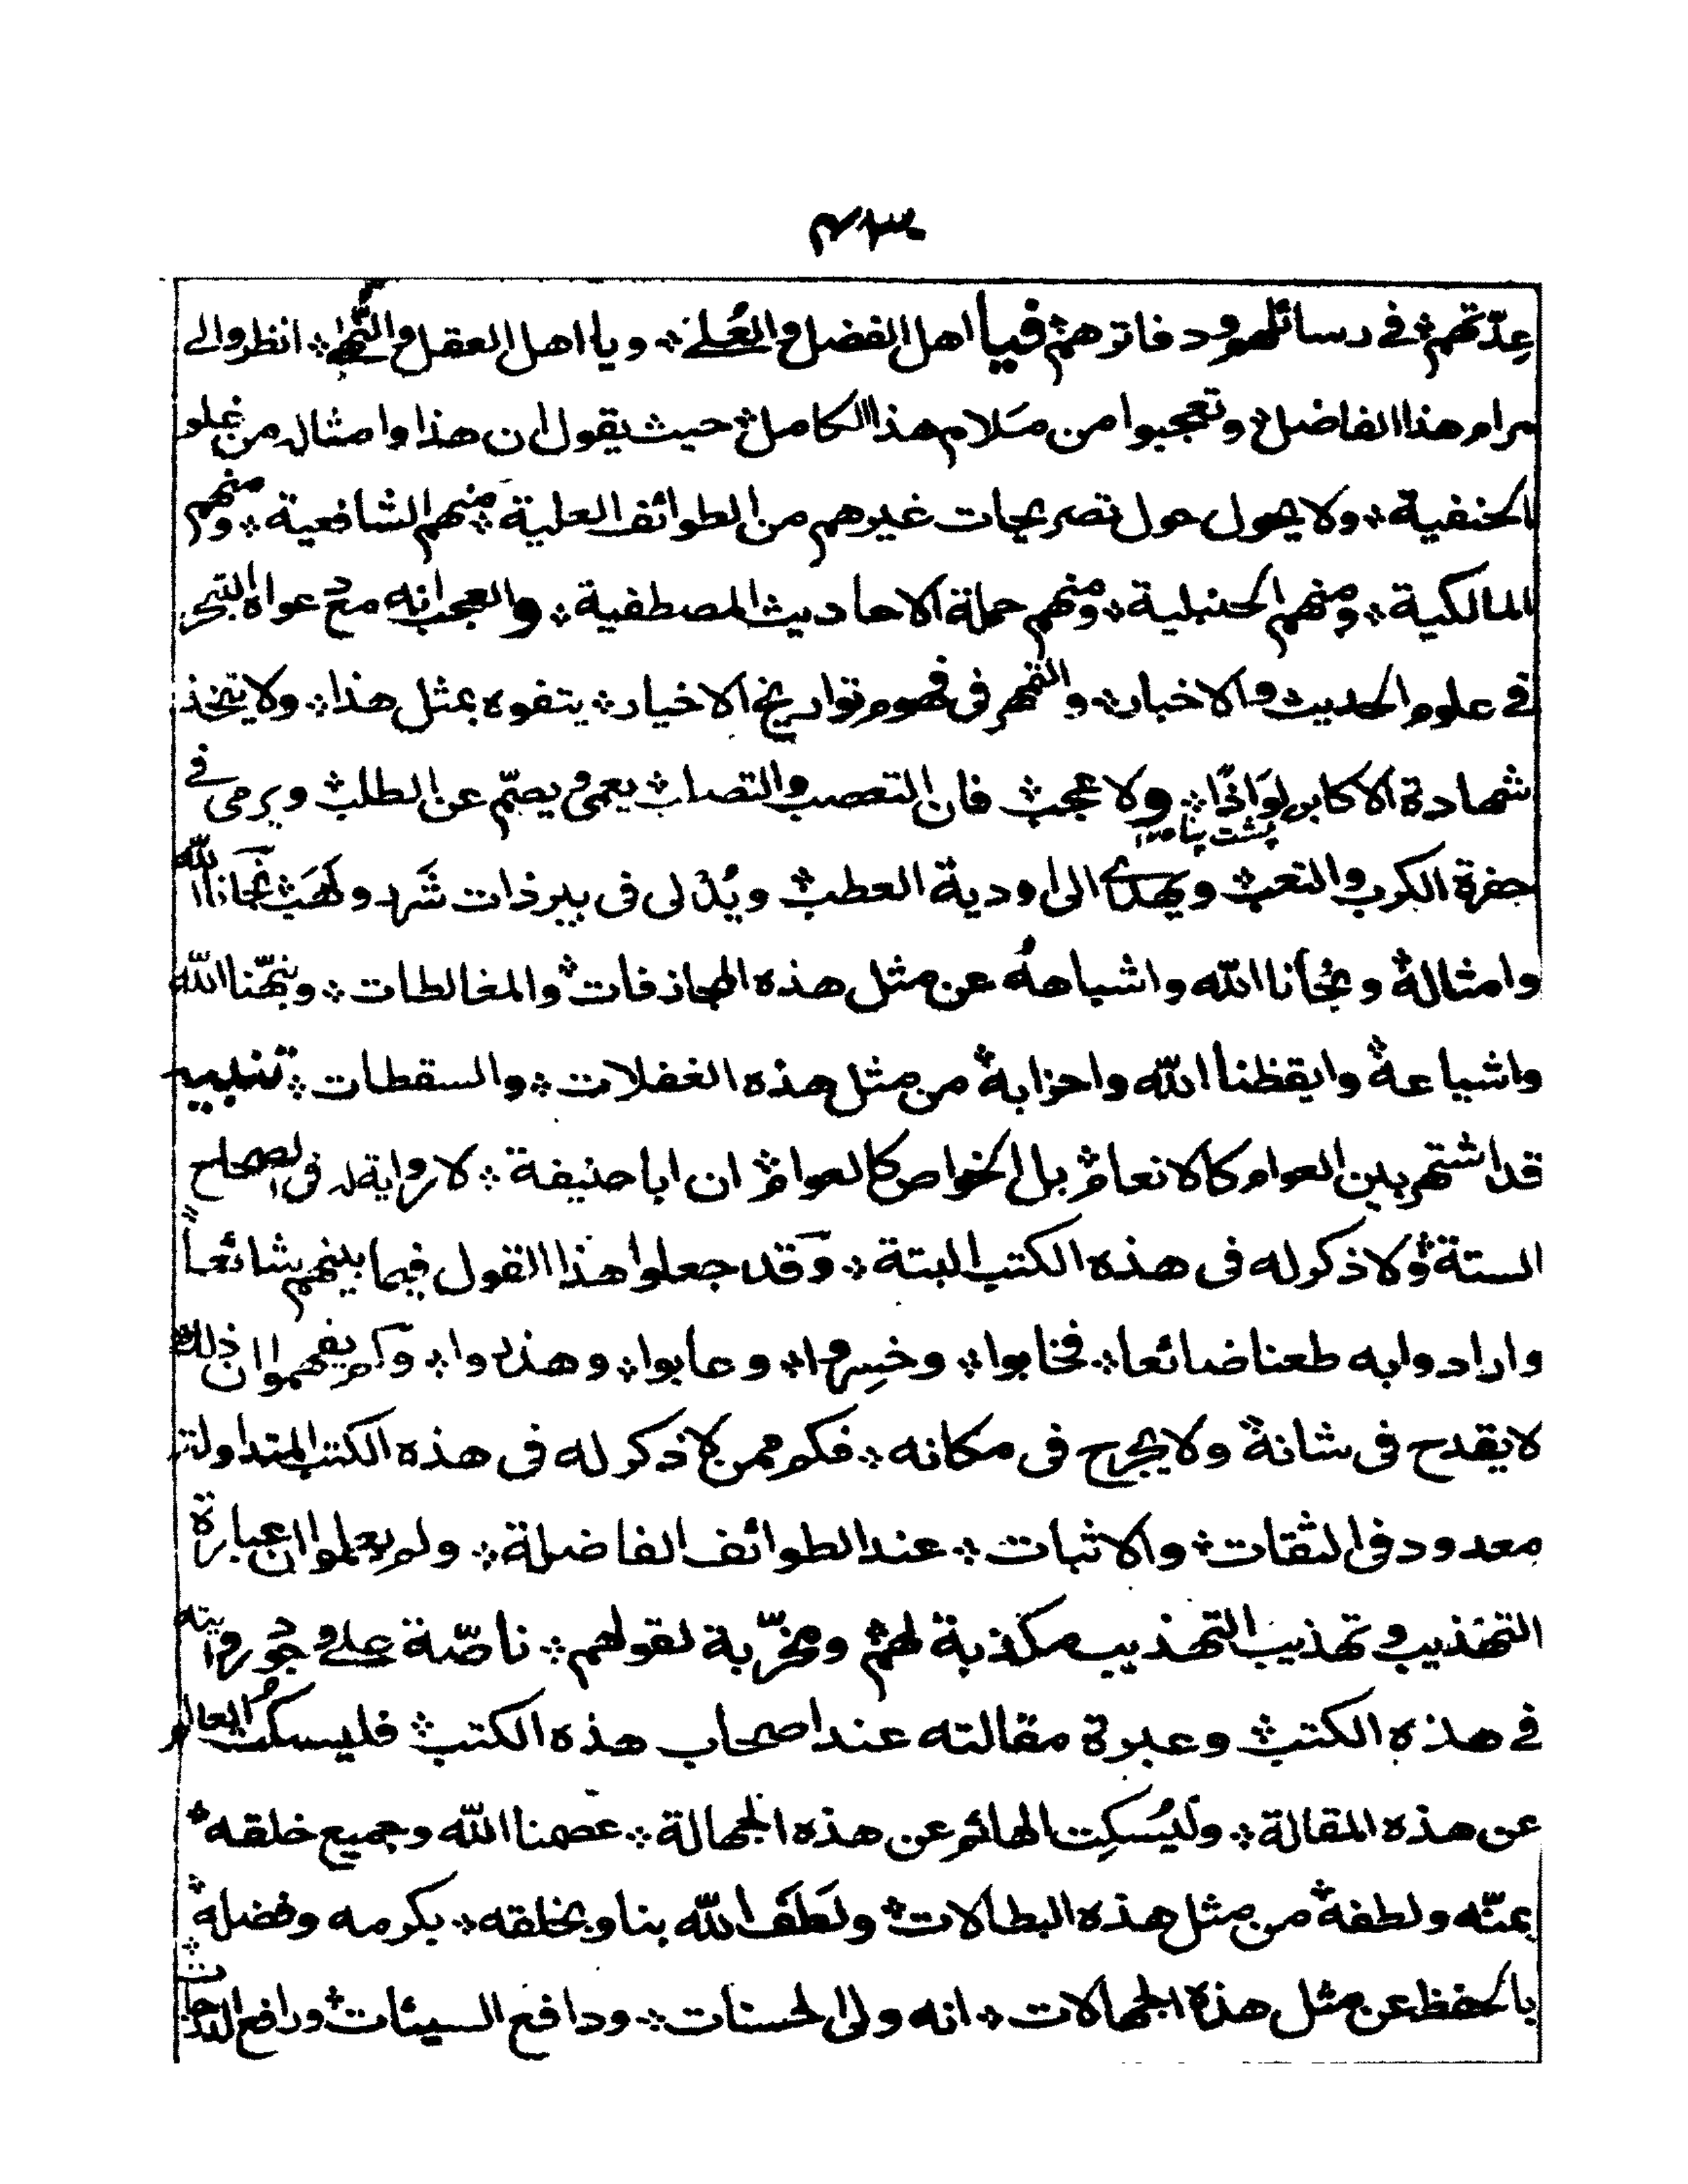 ٤٣٠
عِدّتهم ۞ فى رسائلهم ودفاترهم ۞ فيا اهل الفضل والعُلے ۞ ويا اهل العقل والنُّهٰے ۞ انظروا الى
مرام هذا الفاضل ۞ وتعجبوا من مَلام هذا الكامل ۞ حيث يقول ان هذا وامثاله من غلو
الحنفية ۞ ولا يحول حول تصريحات غيرهم من الطوائف العلية ۞ منهم الشافعية ۞ ومنهم
المالكية ۞ ومنهم الحنبلية ۞ ومنهم حملة الاحاديث المصطفية ۞ والعجب انه مع دعواه التبحر
فى علوم الحديث والاخبار ۞ والتمهر فى فهوم تواريخ الاخيار ۞ يتفوه بمثل هذا ۞ ولا يتخذ
شهادة الاكابر لِوَاذًا ۞ ولا عجب ۞ فان التعصب والتصلب ۞ يعمى ويصمّ عن الطلب ۞ ويرمى فى
حفرة الكرب والتعب ۞ ويهدى الى اودية العطب ۞ ويُدْلى فى بير ذات شَرر ولهَب ۞ نجانا الله
وامثاله ۞ ونجّانا الله واشباهه ۞ عن مثل هذه المجازفات ۞ والمغالطات ۞ ونبّهنا الله
واشياعه ۞ وايقظنا الله واحزابه ۞ من مثل هذه الغفلات ۞ والسقطات ۞ تنبيه
قد اشتهر بين العوام كالانعام ۞ بل الخواص كالعوام ۞ ان ابا حنيفة ۞ لا رواية له فى الصحاح
الستة ۞ ولا ذكر له فى هذه الكتب البتة ۞ وقد جعلوا هذا القول فيما بينهم شائعاً
وارادوا به طعنا ضائعا ۞ فخابوا ۞ وخسِروا ۞ وعابوا ۞ وهذروا ۞ ولم يفهموا ان ذلك
لا يقدح فى شانه ۞ ولا يجرح فى مكانه ۞ فكم ممن لا ذكر له فى هذه الكتب المتداولة
معدود فى الثقات ۞ والاثبات ۞ عند الطوائف الفاضلة ۞ ولم يعلموا ان عبارة
التهذيب وتهذيب التهذيب مكذبة لهم ۞ ومخرّبة لقولهم ۞ ناصّة على وجود روايته
فى هذه الكتب ۞ وعبرة مقالته عند اصحاب هذه الكتب ۞ فليسكُت العالم
عن هذه المقالة ۞ وليُسكِت الهائم عن هذه الجهالة ۞ عصمنا الله وجميع خلقه ۞
بمنّه ولطفه ۞ من مثل هذه البطالات ۞ ولَطَفَ الله بنا وبخلقه ۞ بكرمه وفضله ۞
بالحفظ عن مثل هذه الجهالات ۞ انه ولى الحسنات ۞ ودافع السيئات ۞ ورافع الدرجات ۞